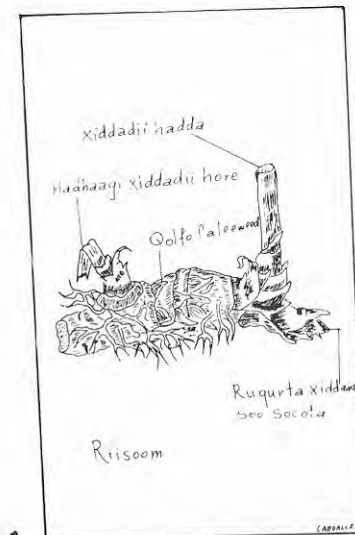 Xiddadii hadda
Hadhaagi xiddadii hore
Qolfo caleemood
Ruqurta xiddada
soo socota
Riisoom
CABDALLE